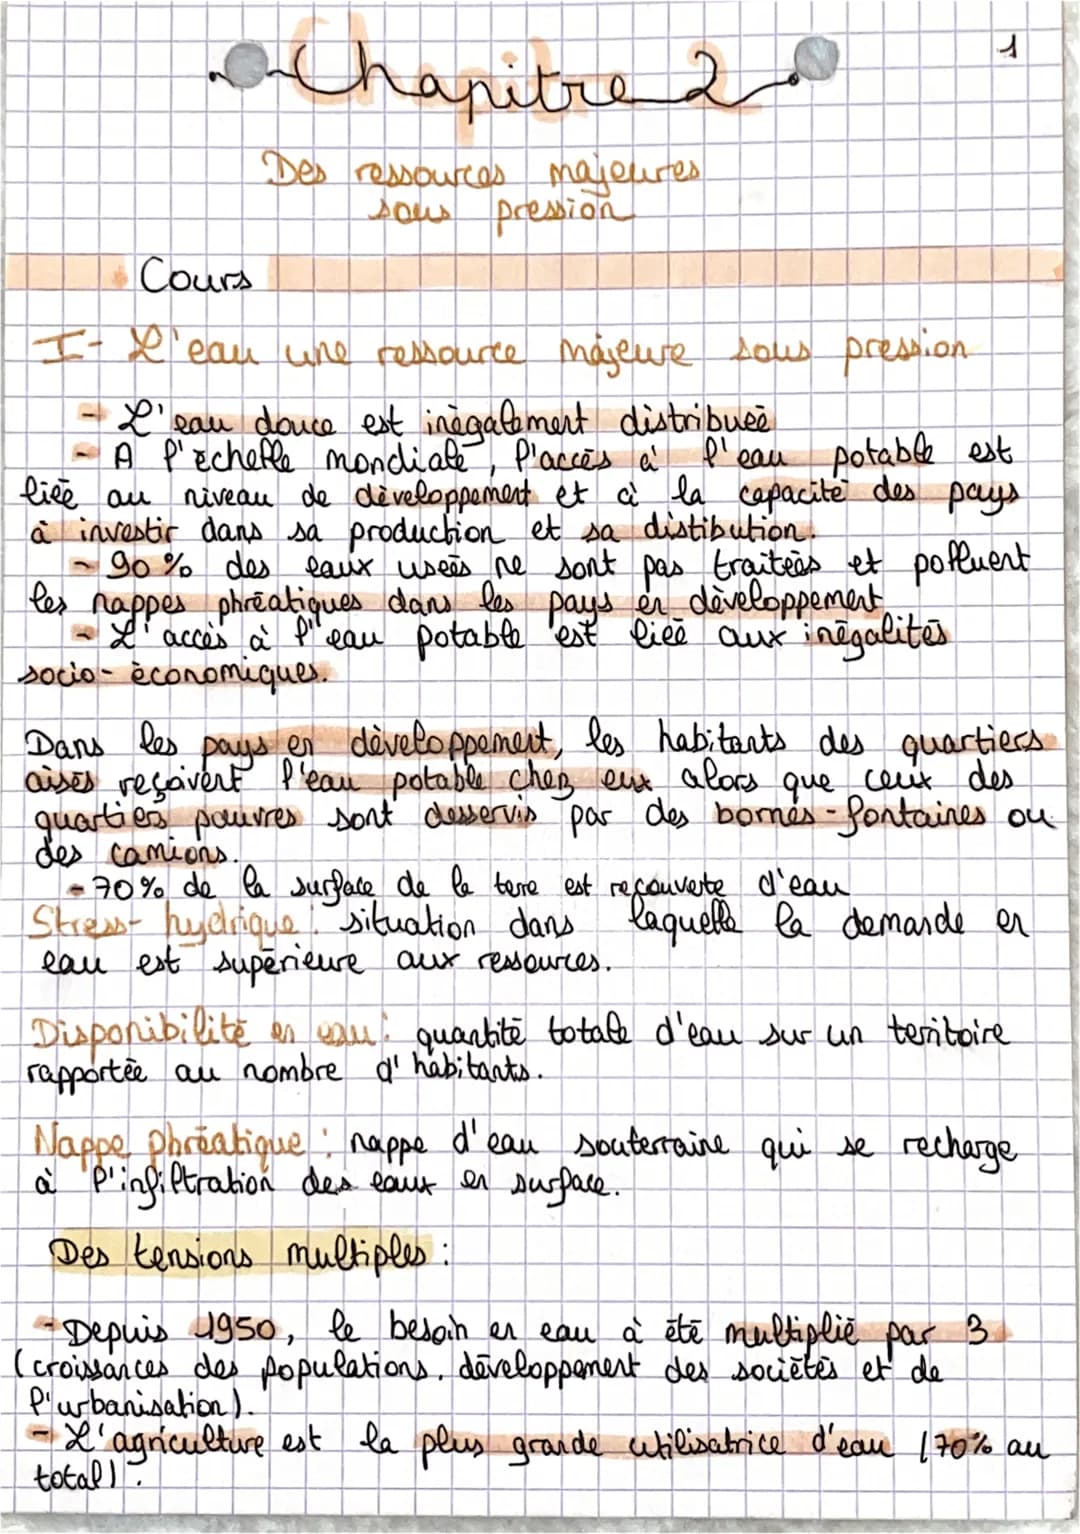 1
Chapitre 2
Des ressources majeures
sous pression
Cours
I- L'eau une ressource majeure sous pression
- L'eau douce est inégalement distribueé
- A l'échelle mondiale, l'accès à l'eau potable est
liée au niveau de développement et à la capacité des pays
à investir dans sa production et sa distibution.
- 90% des eaux useés ne sont pas traiteès et polluent
les nappes phréatiques dans les pays en développement
- L'accès à l'eau potable est lieé aux inégalités
socio-économiques.
Dans les pays en développement, les habitants des quartiers
aisés reçoivent l'eau potable chez eux alors que ceux des
quartiers pauvres sont desservis par des bornes-fontaines ou
des camions.
- 70% de la surface de la terre est recouverte d'eau
Stress-hydrique : situation dans laquelle la demande en
eau est supérieure aux ressources.
Disponibilité en eau : quantité totale d'eau sur un territoire
rapportée au nombre d'habitants.
Nappe phréatique : nappe d'eau souterraine qui se recharge
à l'infiltration des eaux en surface.
Des tensions multiples :
- Depuis 1950, le besoin en eau à été multiplié par 3
(croissances des populations, développement des sociétés et de
l'urbanisation).
- L'agriculture est la plus grande utilisatrice d'eau (70% au
total).